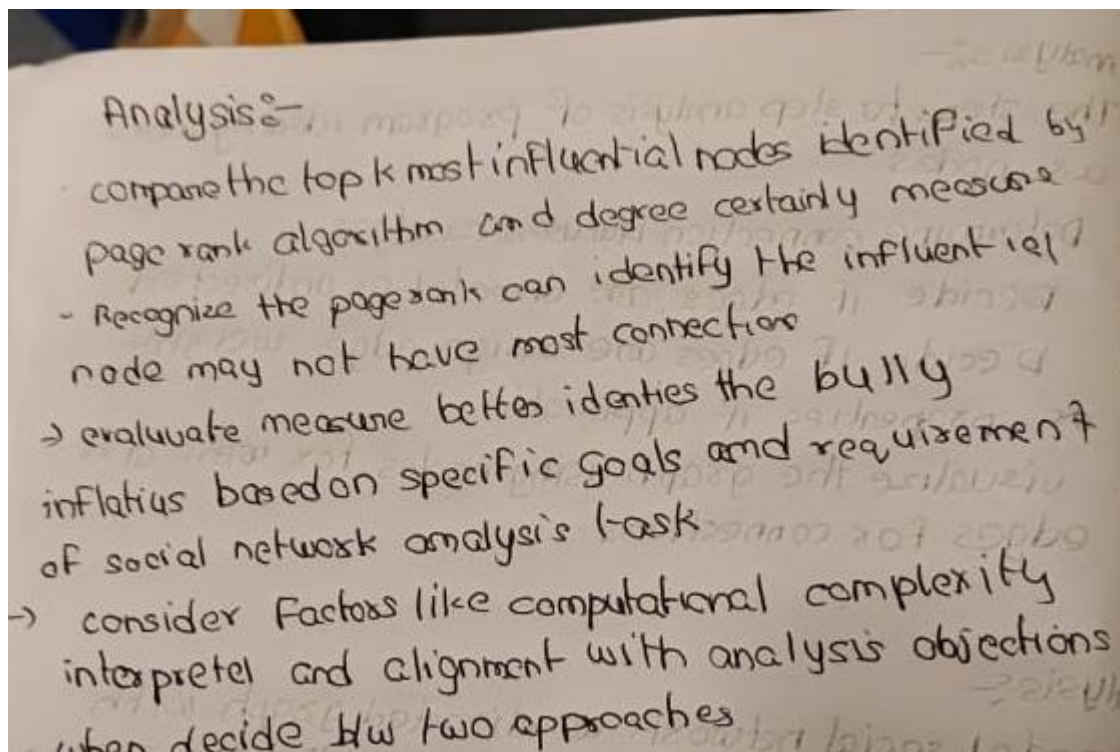 Analysis:-
compare the top k most influential nodes identified by
page rank algorithm and degree certainly measure
- Recognize the pagerank can identify the influentiel
node may not have most connection
→ evaluvate measure better identies the bully
inflatius based on specific goals and requirement
of social network analysis task
→ consider Factors like computational complexity
interpretel and alignment with analysis objections
when decide b/w two approaches